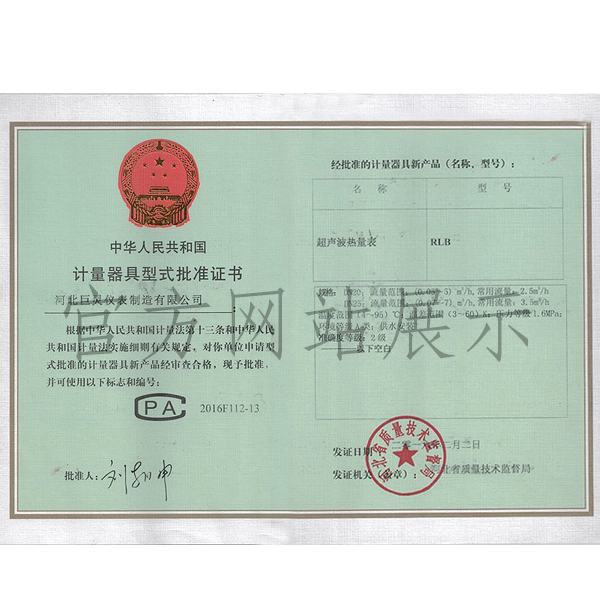 中华人民共和国
计量器具型式批准证书
河北巨昊仪表制造有限公司:
根据中华人民共和国计量法第十三条和中华人民
共和国计量法实施细则有关规定,对你单位申请型
式批准的计量器具新产品经审查合格,现予批准,
并可使用以下标志和编号:
CPA 2016F112-13
批准人:
经批准的计量器具新产品(名称、型号):
名称 型号
超声波热量表 RLB
规格: DN20, 流量范围: (0.05~5) m³/h, 常用流量: 2.5m³/h
DN25, 流量范围: (0.07~7) m³/h, 常用流量: 3.5m³/h
温度范围(4~95)℃; 温差范围(3~60) K; 压力等级 1.6MPa;
环境等级A类; 供水安装
准确度等级: 2级
以下空白
发证日期 二月二日
发证机关(盖章): 河北省质量技术监督局
河北省质量技术监督局
官方网站展示